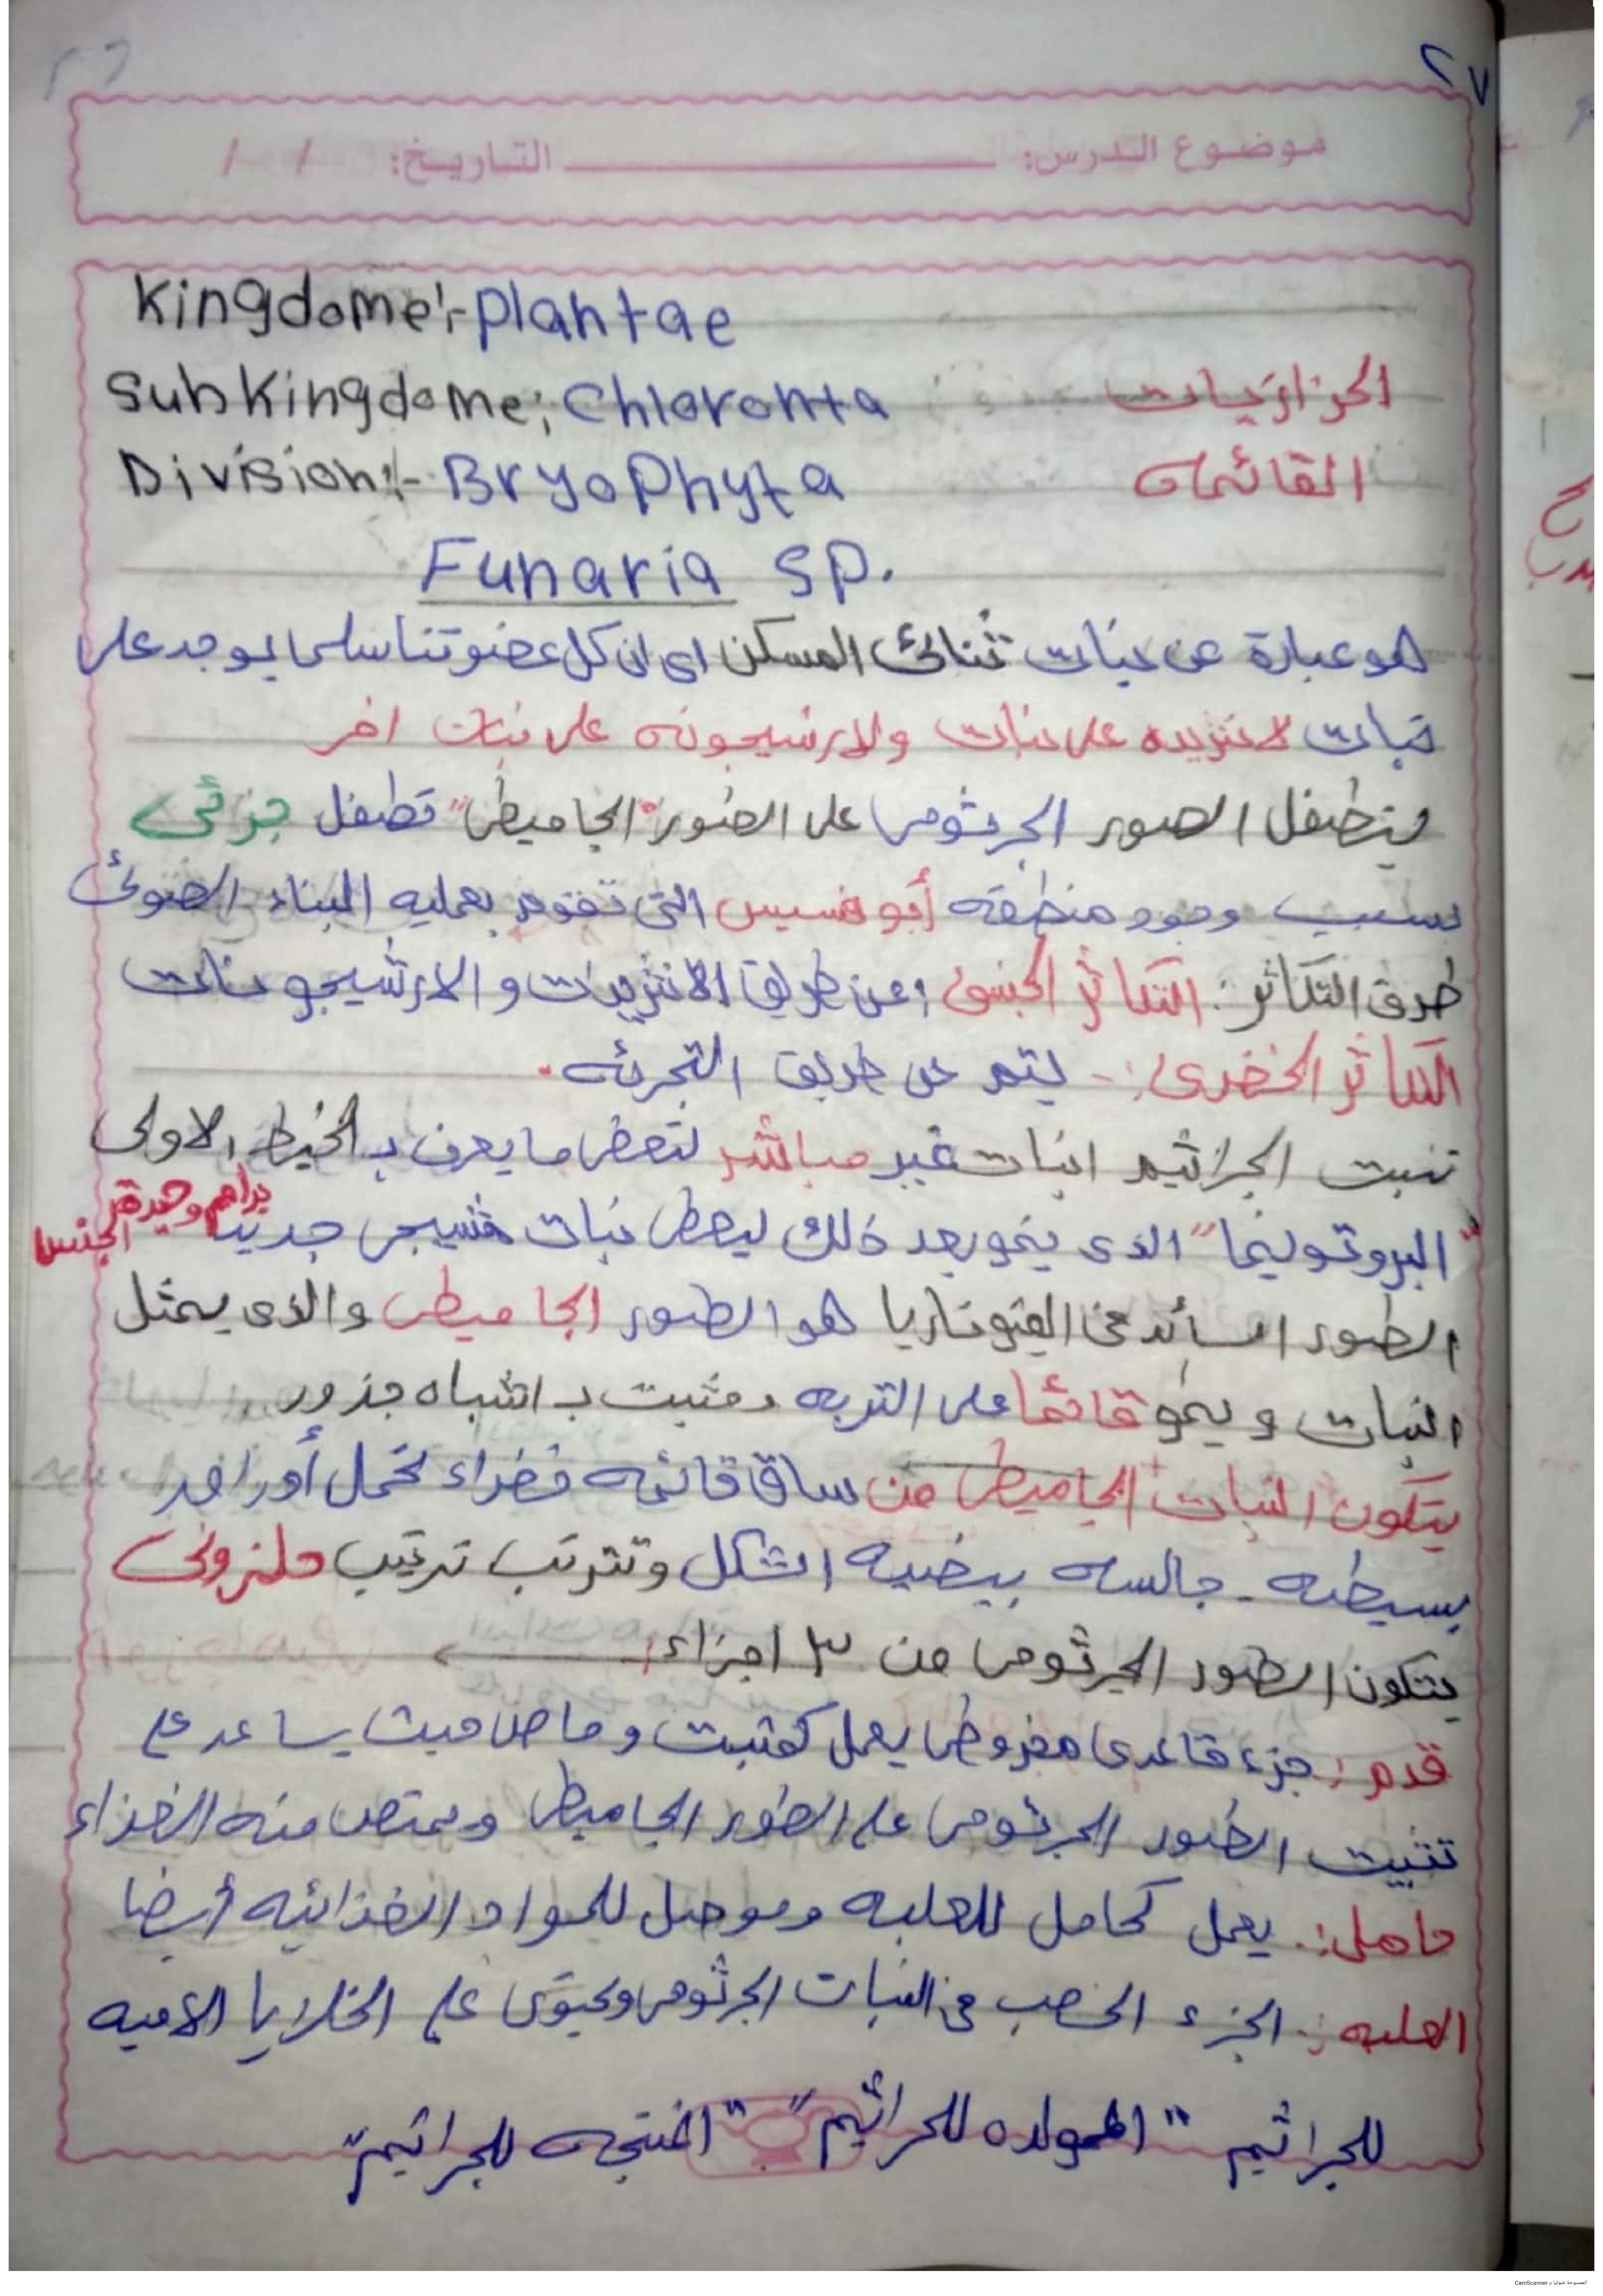 ٢٧
موضوع الدرس: التاريخ: / /
Kingdome:- plantae
Subkingdome: Chloronta
الحزازيات
Division:- BryoPhyta
القائمات
Funaria sp.
هو عبارة عن نبات ثنائى المسكن اى ان كل عضو تناسلى يوجد على
نبات لانثريده على نبات والارشيجونه على نبات اخر
يتطفل الطور الجرثومى على الطور "الجاميطى" تطفل جزئى
بسبب وجود منطقه أبوفسيس التى تقوم بعمليه البناء الضوئى
طرق التكاثر: التكاثر الجنسى: عن طريق الانثريدات والارشيجونات
التكاثر الخضرى:- يتم عن طريق التجزئه.
تنبت الجراثيم انبات غير مباشر لتعطى ما يعرف بـ الخيط الاولى
"البروتونيما" الذى ينمو بعد ذلك ليعطى نبات مشيجى جديد
براعم وحيدة الجنس
الطور السائد فى الفيوناريا هو الطور الجاميطى والذى يمثل
النبات وينمو قائما على التربه ومثبت بـ اشباه جذور
يتكون النبات الجاميطى من ساق قائمه خضراء تحمل أوراق
بسيطه - جالسه بيضيه الشكل وتترتب ترتيب حلزونى
يتكون الطور الجرثومى من ٣ اجزاء:
قدم: جزء قاعدى مخروطى يعمل كمثبت وماص حيث يساعد على
تثبيت الطور الجرثومى على الطور الجاميطى ويمتص منه الغذاء
حامل:. يعمل كحامل للعلبه وموصل للمواد الغذائيه أيضا
العلبه:. الجزء الخصب فى النبات الجرثومى ويحتوى على الخلايا الاميه
للجراثيم "المولده للجراثيم" "المنتجه للجراثيم"
الممسوحة ضوئيا بـ CamScanner